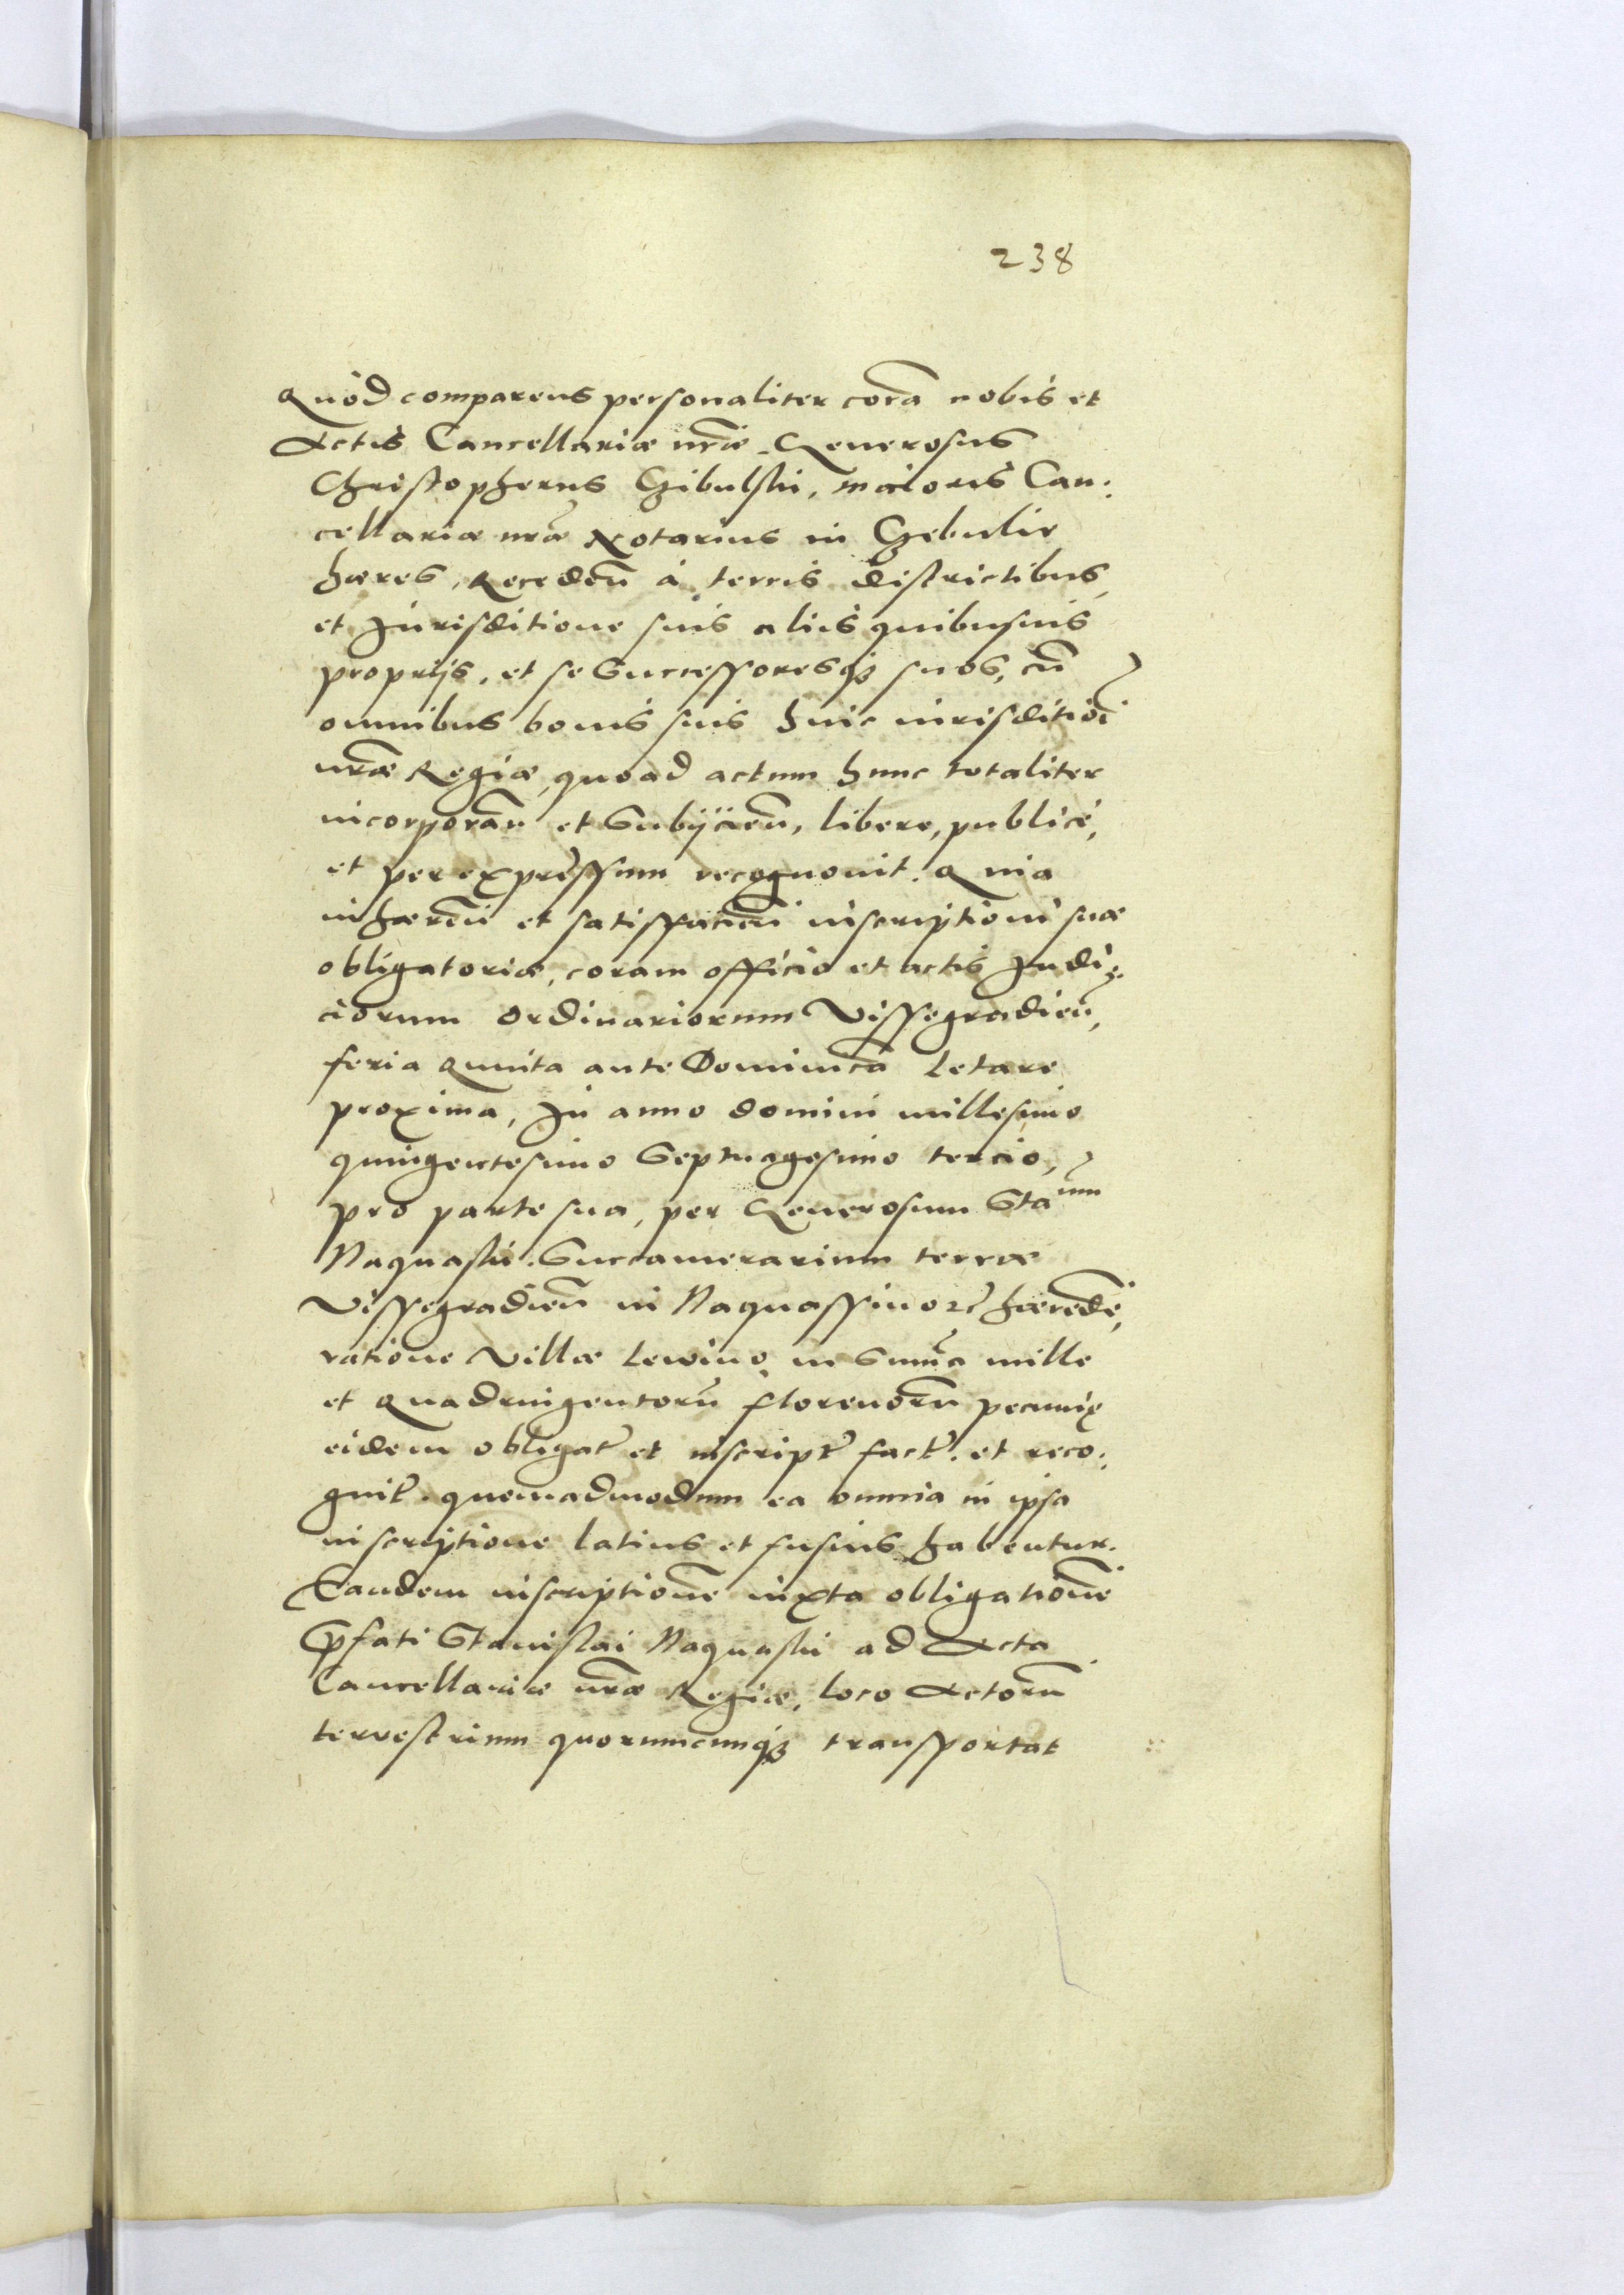 238
Quòd comparens personaliter corã nobis et
Actis Cancellariæ nrãe Generosus
Christopherus Gibulski, maioris Can:
cellariæ nrãe Notarius in Gebulie
hæres, Recedeñ à terris districtibus,
et Jurisditione suis aliis quibusuis
proprijs, et se Successoresq3 suos, cũ
omnibus bonis suis huic iurisditioĩ
nrãe Regiæ, quoad actum hunc totaliter
incorporañ et Subijcieñ, libere, publicè,
et per expressum recognouit. Quia
inhæreñ et satisfacieñ inscriptioni suæ
obligatoriæ, coram officio et actis Judi:
ciorum Ordinariorum Vissegradieñ,
feria Quinta ante Dominicã Letare
proximã, In anno domini millesimo
quingentesimo Septuagesimo tercio,
pro parte sua, per Generosum Staum
Naquaski. Succamerarium terræ
Vissegradieñ in Naquassino etc hæredẽ,
ratione Villæ Lewino, in Sum̃a mille
et Quadringentorũ florenorũ pecunię
eidem obligat et inscript fact. et reco:
gnit. quemadmodum ea omnia in ipsa
inscriptione latius et fusius habentur.
Eandem inscriptionẽ iuxta obligationẽ
p̃fati Stanislai Naquaski ad Acta
Cancellariæ nrãe Regiæ, loco Actorũ
terrestrium quorumcumq3 transportat